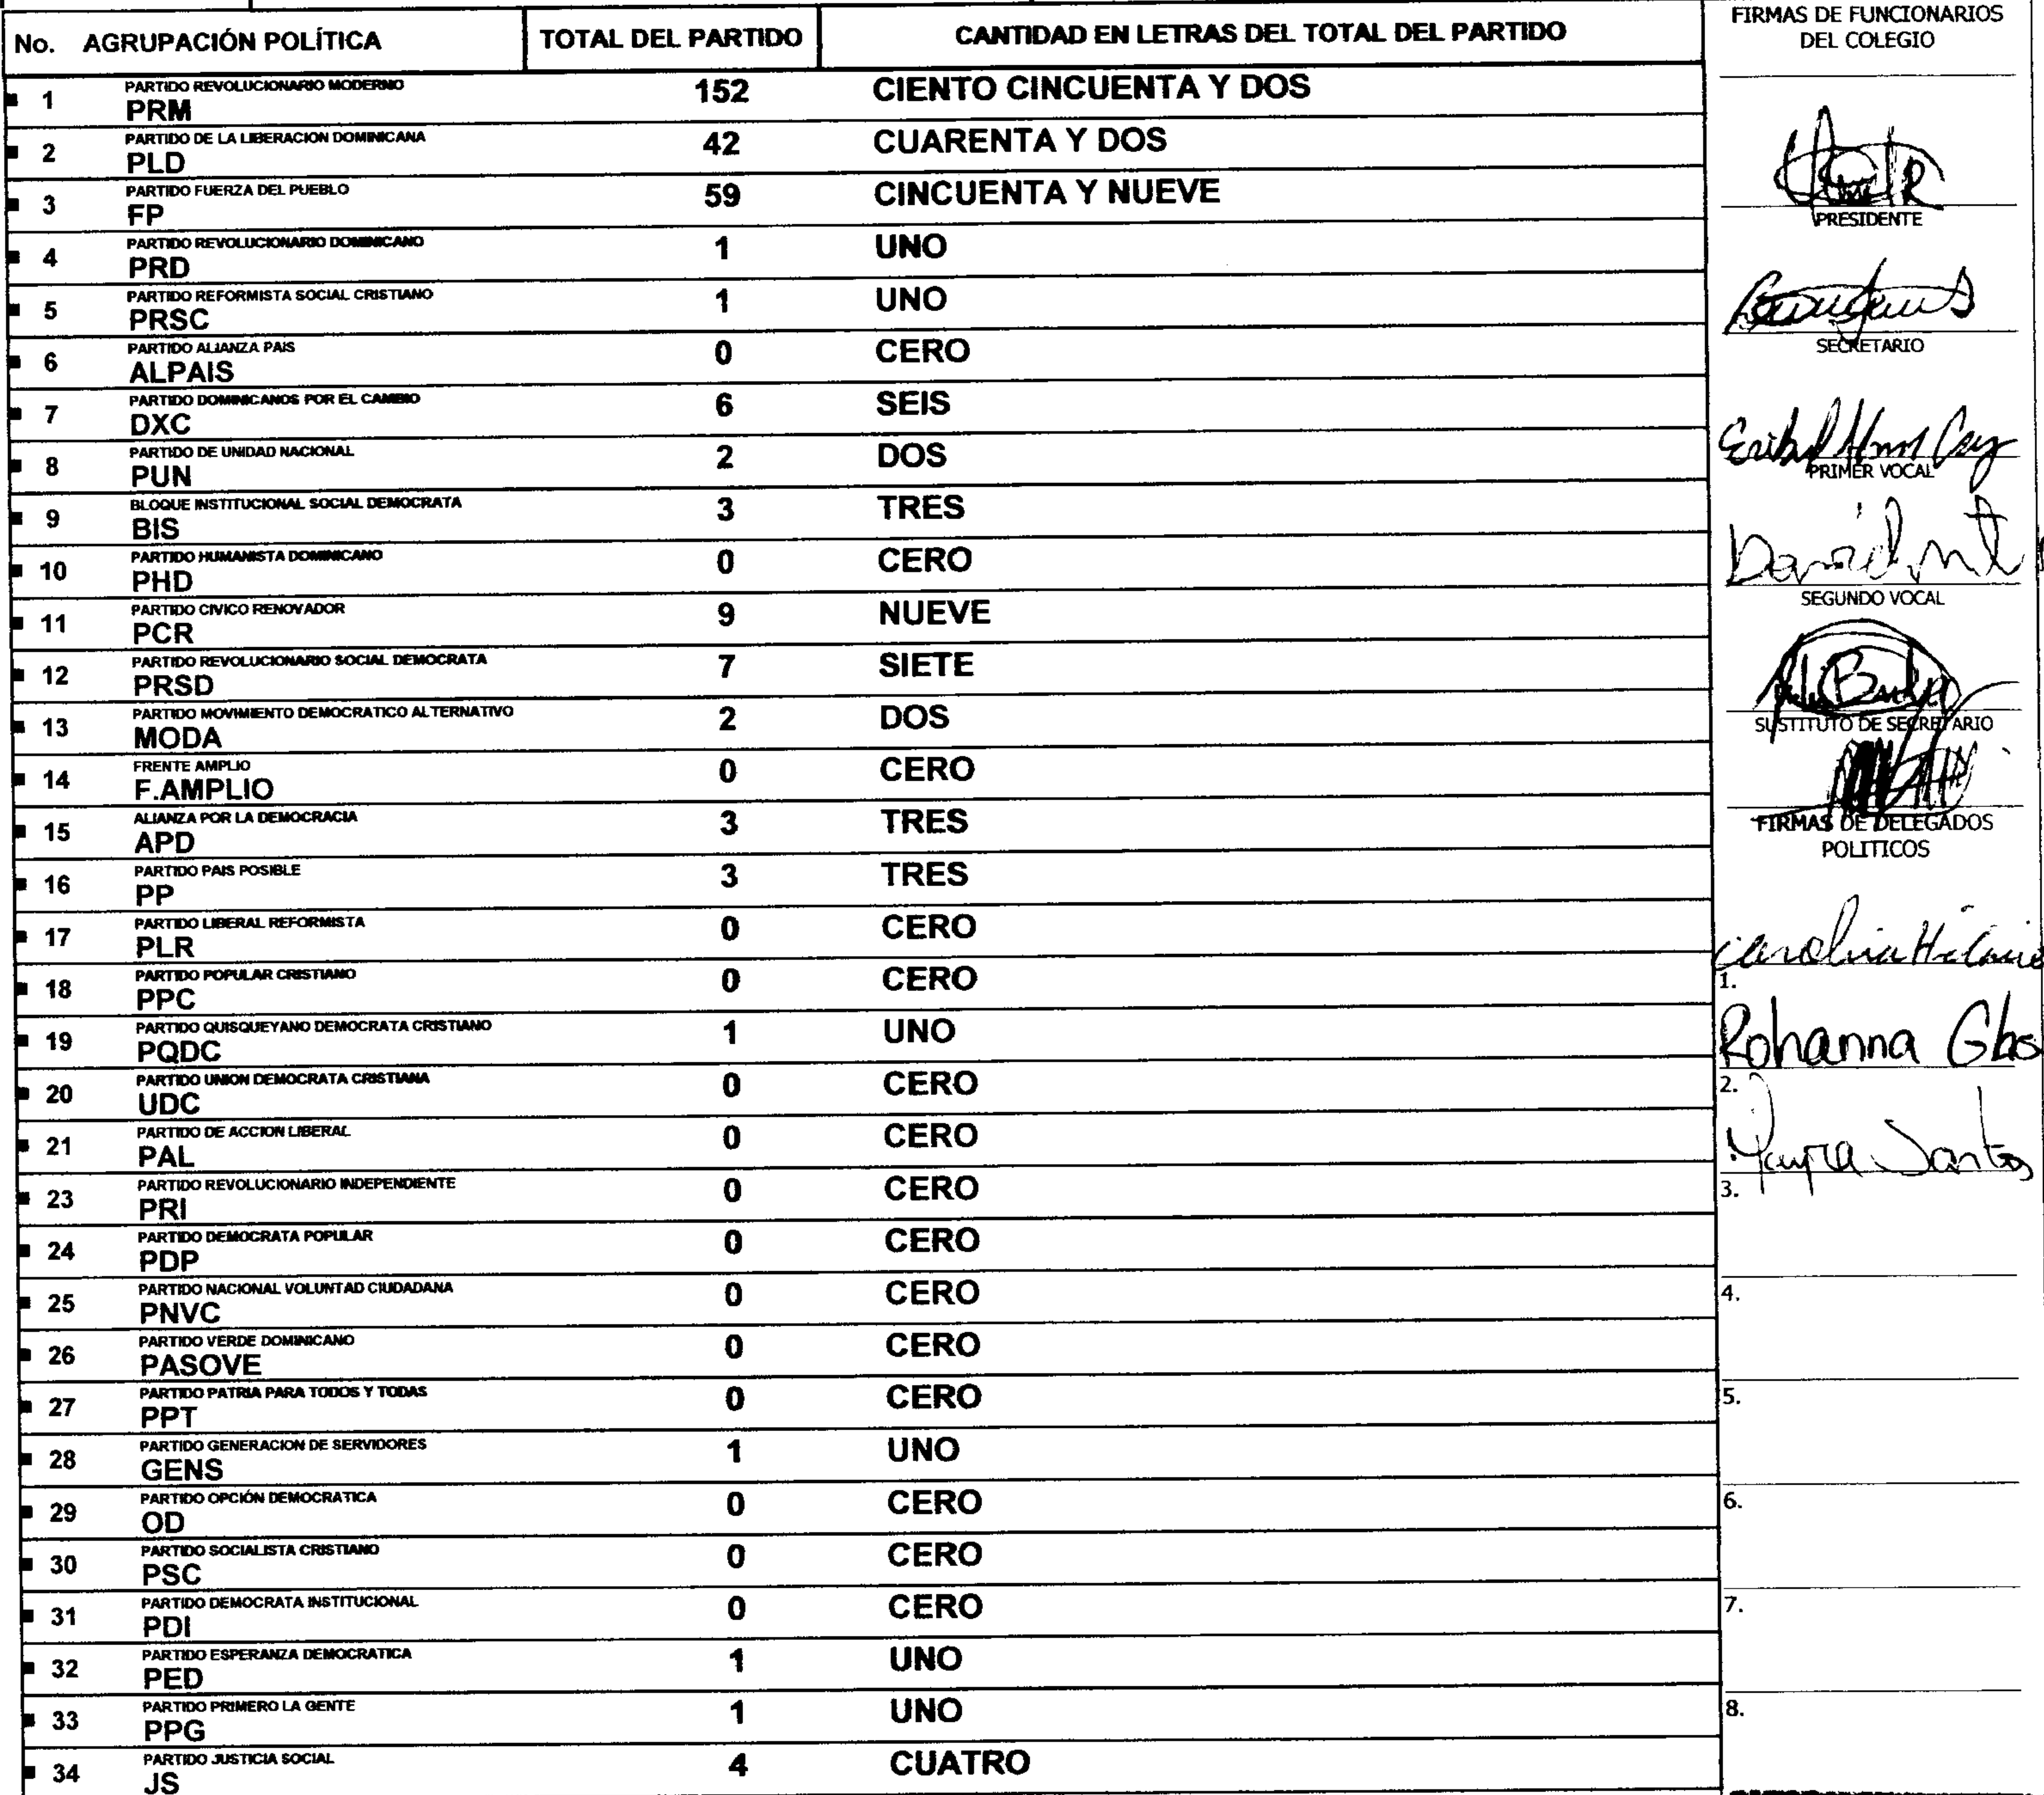 No. AGRUPACIÓN POLÍTICA TOTAL DEL PARTIDO CANTIDAD EN LETRAS DEL TOTAL DEL PARTIDO
1 PARTIDO REVOLUCIONARIO MODERNO 152 CIENTO CINCUENTA Y DOS
PRM
2 PARTIDO DE LA LIBERACION DOMINICANA 42 CUARENTA Y DOS
PLD
3 PARTIDO FUERZA DEL PUEBLO 59 CINCUENTA Y NUEVE
FP
4 PARTIDO REVOLUCIONARIO DOMINICANO 1 UNO
PRD
5 PARTIDO REFORMISTA SOCIAL CRISTIANO 1 UNO
PRSC
6 PARTIDO ALIANZA PAIS 0 CERO
ALPAIS
7 PARTIDO DOMINICANOS POR EL CAMBIO 6 SEIS
DXC
8 PARTIDO DE UNIDAD NACIONAL 2 DOS
PUN
9 BLOQUE INSTITUCIONAL SOCIAL DEMOCRATA 3 TRES
BIS
10 PARTIDO HUMANISTA DOMINICANO 0 CERO
PHD
11 PARTIDO CIVICO RENOVADOR 9 NUEVE
PCR
12 PARTIDO REVOLUCIONARIO SOCIAL DEMOCRATA 7 SIETE
PRSD
13 PARTIDO MOVIMIENTO DEMOCRATICO ALTERNATIVO 2 DOS
MODA
14 FRENTE AMPLIO 0 CERO
F.AMPLIO
15 ALIANZA POR LA DEMOCRACIA 3 TRES
APD
16 PARTIDO PAIS POSIBLE 3 TRES
PP
17 PARTIDO LIBERAL REFORMISTA 0 CERO
PLR
18 PARTIDO POPULAR CRISTIANO 0 CERO
PPC
19 PARTIDO QUISQUEYANO DEMOCRATA CRISTIANO 1 UNO
PQDC
20 PARTIDO UNION DEMOCRATA CRISTIANA 0 CERO
UDC
21 PARTIDO DE ACCION LIBERAL 0 CERO
PAL
23 PARTIDO REVOLUCIONARIO INDEPENDIENTE 0 CERO
PRI
24 PARTIDO DEMOCRATA POPULAR 0 CERO
PDP
25 PARTIDO NACIONAL VOLUNTAD CIUDADANA 0 CERO
PNVC
26 PARTIDO VERDE DOMINICANO 0 CERO
PASOVE
27 PARTIDO PATRIA PARA TODOS Y TODAS 0 CERO
PPT
28 PARTIDO GENERACION DE SERVIDORES 1 UNO
GENS
29 PARTIDO OPCIÓN DEMOCRATICA 0 CERO
OD
30 PARTIDO SOCIALISTA CRISTIANO 0 CERO
PSC
31 PARTIDO DEMOCRATA INSTITUCIONAL 0 CERO
PDI
32 PARTIDO ESPERANZA DEMOCRATICA 1 UNO
PED
33 PARTIDO PRIMERO LA GENTE 1 UNO
PPG
34 PARTIDO JUSTICIA SOCIAL 4 CUATRO
JS
FIRMAS DE FUNCIONARIOS
DEL COLEGIO
PRESIDENTE
SECRETARIO
PRIMER VOCAL
David
SEGUNDO VOCAL
SUSTITUTO DE SECRETARIO
FIRMAS DE DELEGADOS
POLITICOS
Carolina
1.
Rohanna
2.
Mayra Santos
3.
4.
5.
6.
7.
8.